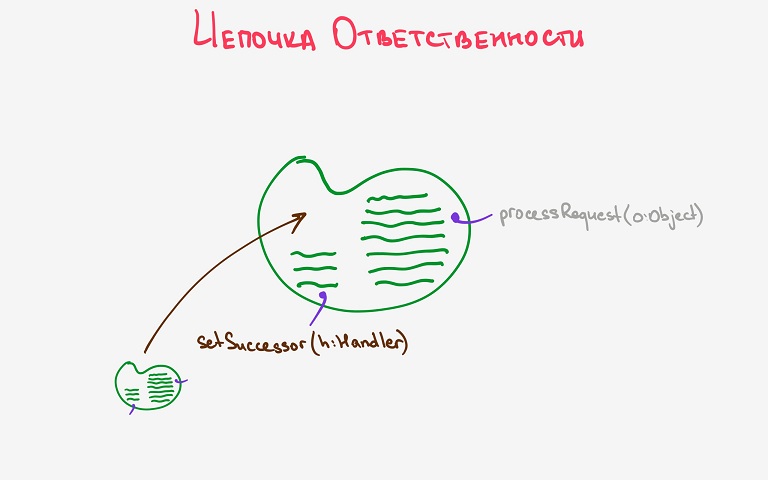 Цепочка Ответственности
processRequest(o:Object)
setSuccessor(h:Handler)